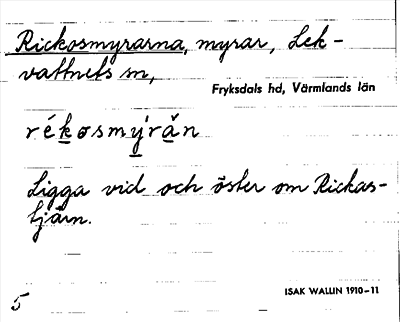 Rickosmyrarna, myrar, Lek-
vattnets sn,
Fryksdals hd, Värmlands län
rékosmýrån
Ligga vid och öster om Rickas-
tjärn.
5
ISAK WALLIN 1910-11